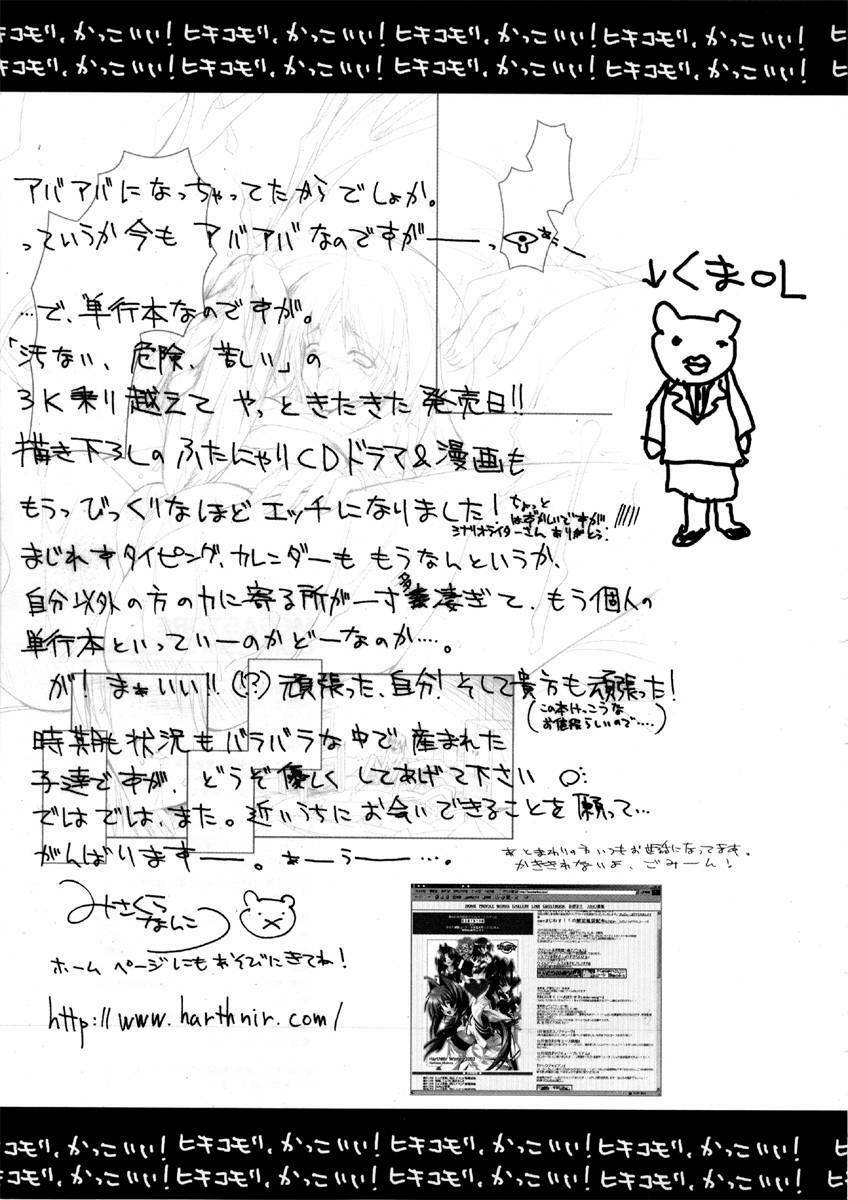 ヒキコモリ、かっこいい！ヒキコモリ、かっこいい！ヒキコモリ、かっこいい！ヒキコモリ、かっこいい！ ヒ
ヒキコモリ、かっこいい！ヒキコモリ、かっこいい！ヒキコモリ、かっこいい！ヒキコモリ、かっこいい！ ヒ
アバアバになっちゃってたからでしょか。
っていうか今も アバアバなのですがーーっ
↓くまOL
…で、単行本なのですが。
「汚ない、危険、苦しい」の
3K乗り越えて やっときたきた発売日!!
描き下ろしの ふたにゃりCDドラマ&漫画も
もうっびっくりなほど エッチになりました！
ちょっと
はずかしいですが
シナリオライターさん ありがとう！
まじれすタイピング、カレンダーも もうなんというか、
自分以外の方の力に寄る所が一寸多凄ぎて、もう個人の
単行本といっていーのかどーなのか…。
が！ まぁいい!!(!?)頑張った、自分！そして貴方も頑張った！
(この本けっこうな
お値段らしいので‥‥)
時期も状況もバラバラな中で 産まれた
子達ですが、どうぞ優しく してあげて下さい
ではでは、また。近いうちに お会いできることを 願って…
がんばりますーー。あーうーー…。
あとまわりの方いつもお世話になってます。
かききれないよ、ごみーん！
みさくら
なんこつ
ホームページにもあそびにきてね！
http://www.harthnir.com/
HOME PROFILE WORKS GALLERY LINK GUESTBOOK
HarthNir Works 2002
ヒキコモリ、かっこいい！ヒキコモリ、かっこいい！ヒキコモリ、かっこいい！ヒキコモリ、かっこいい！ ヒ
ヒキコモリ、かっこいい！ヒキコモリ、かっこいい！ヒキコモリ、かっこいい！ヒキコモリ、かっこいい！ ヒ